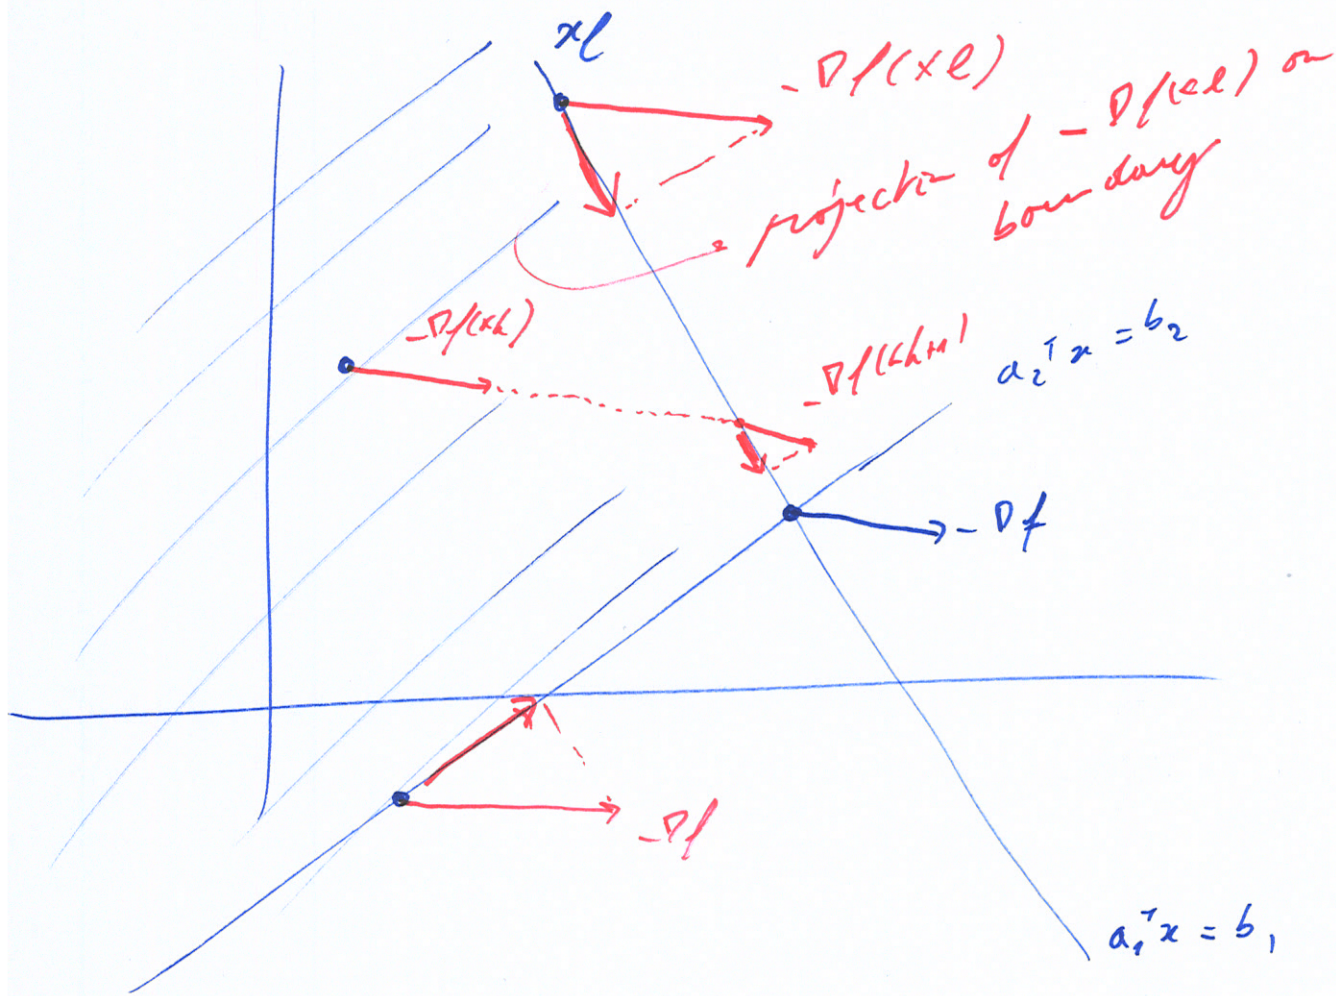 xℓ
-∇f(xℓ)
projection of -∇f(xℓ) on
boundary
-∇f(xk)
-∇f(xk+1)
a₂ᵀx = b₂
-∇f
-∇f
a₁ᵀx = b₁